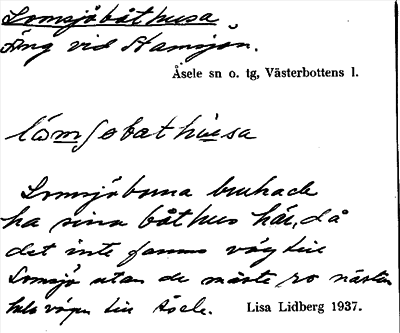 Lomsjöbåthusa
Äng vid Hamsjön.
Åsele sn o. tg, Västerbottens l.
Lomsjöborna brukade
ha sina båthus här, då
det inte fanns väg till
Lomsjö utan de måste ro nästan
hela vägen till Åsele.
Lisa Lidberg 1937.